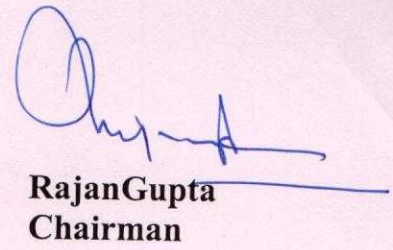 RajanGupta
Chairman